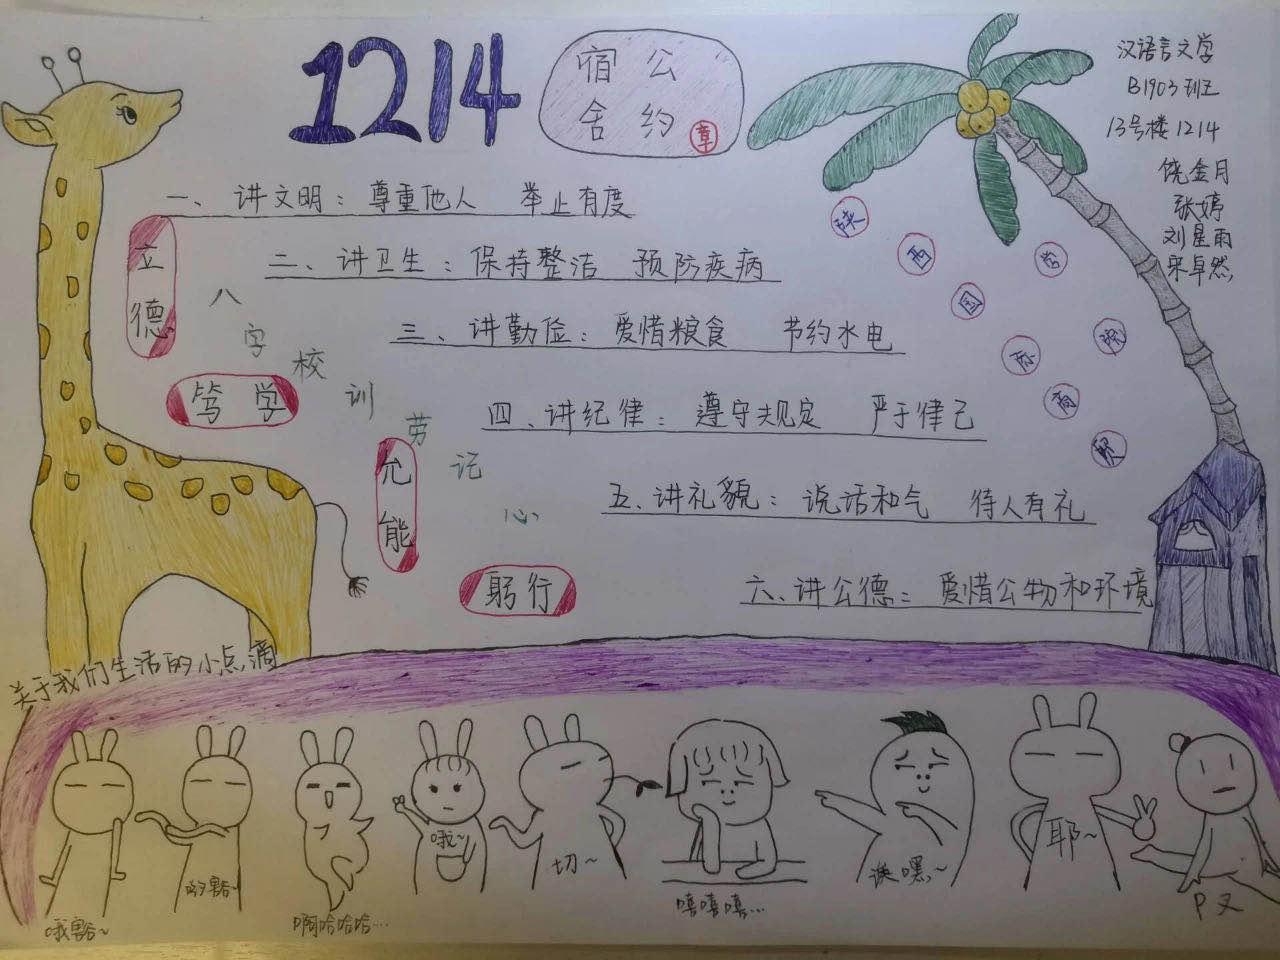 1214
宿舍公约
章
汉语言文学
B1903班
13号楼1214
饶金月
张婷
刘星雨
宋卓然
一、讲文明：尊重他人 举止有度
二、讲卫生：保持整洁 预防疾病
三、讲勤俭：爱惜粮食 节约水电
四、讲纪律：遵守规定 严于律己
五、讲礼貌：说话和气 待人有礼
六、讲公德：爱惜公物和环境
立德
笃学
允能
躬行
八字校训劳记心
陕西国际商贸学院
关于我们生活的小点滴
哦豁~
哟豁~
啊哈哈哈…
哦~
切~
嘻嘻嘻…
嘿~
耶~
P叉